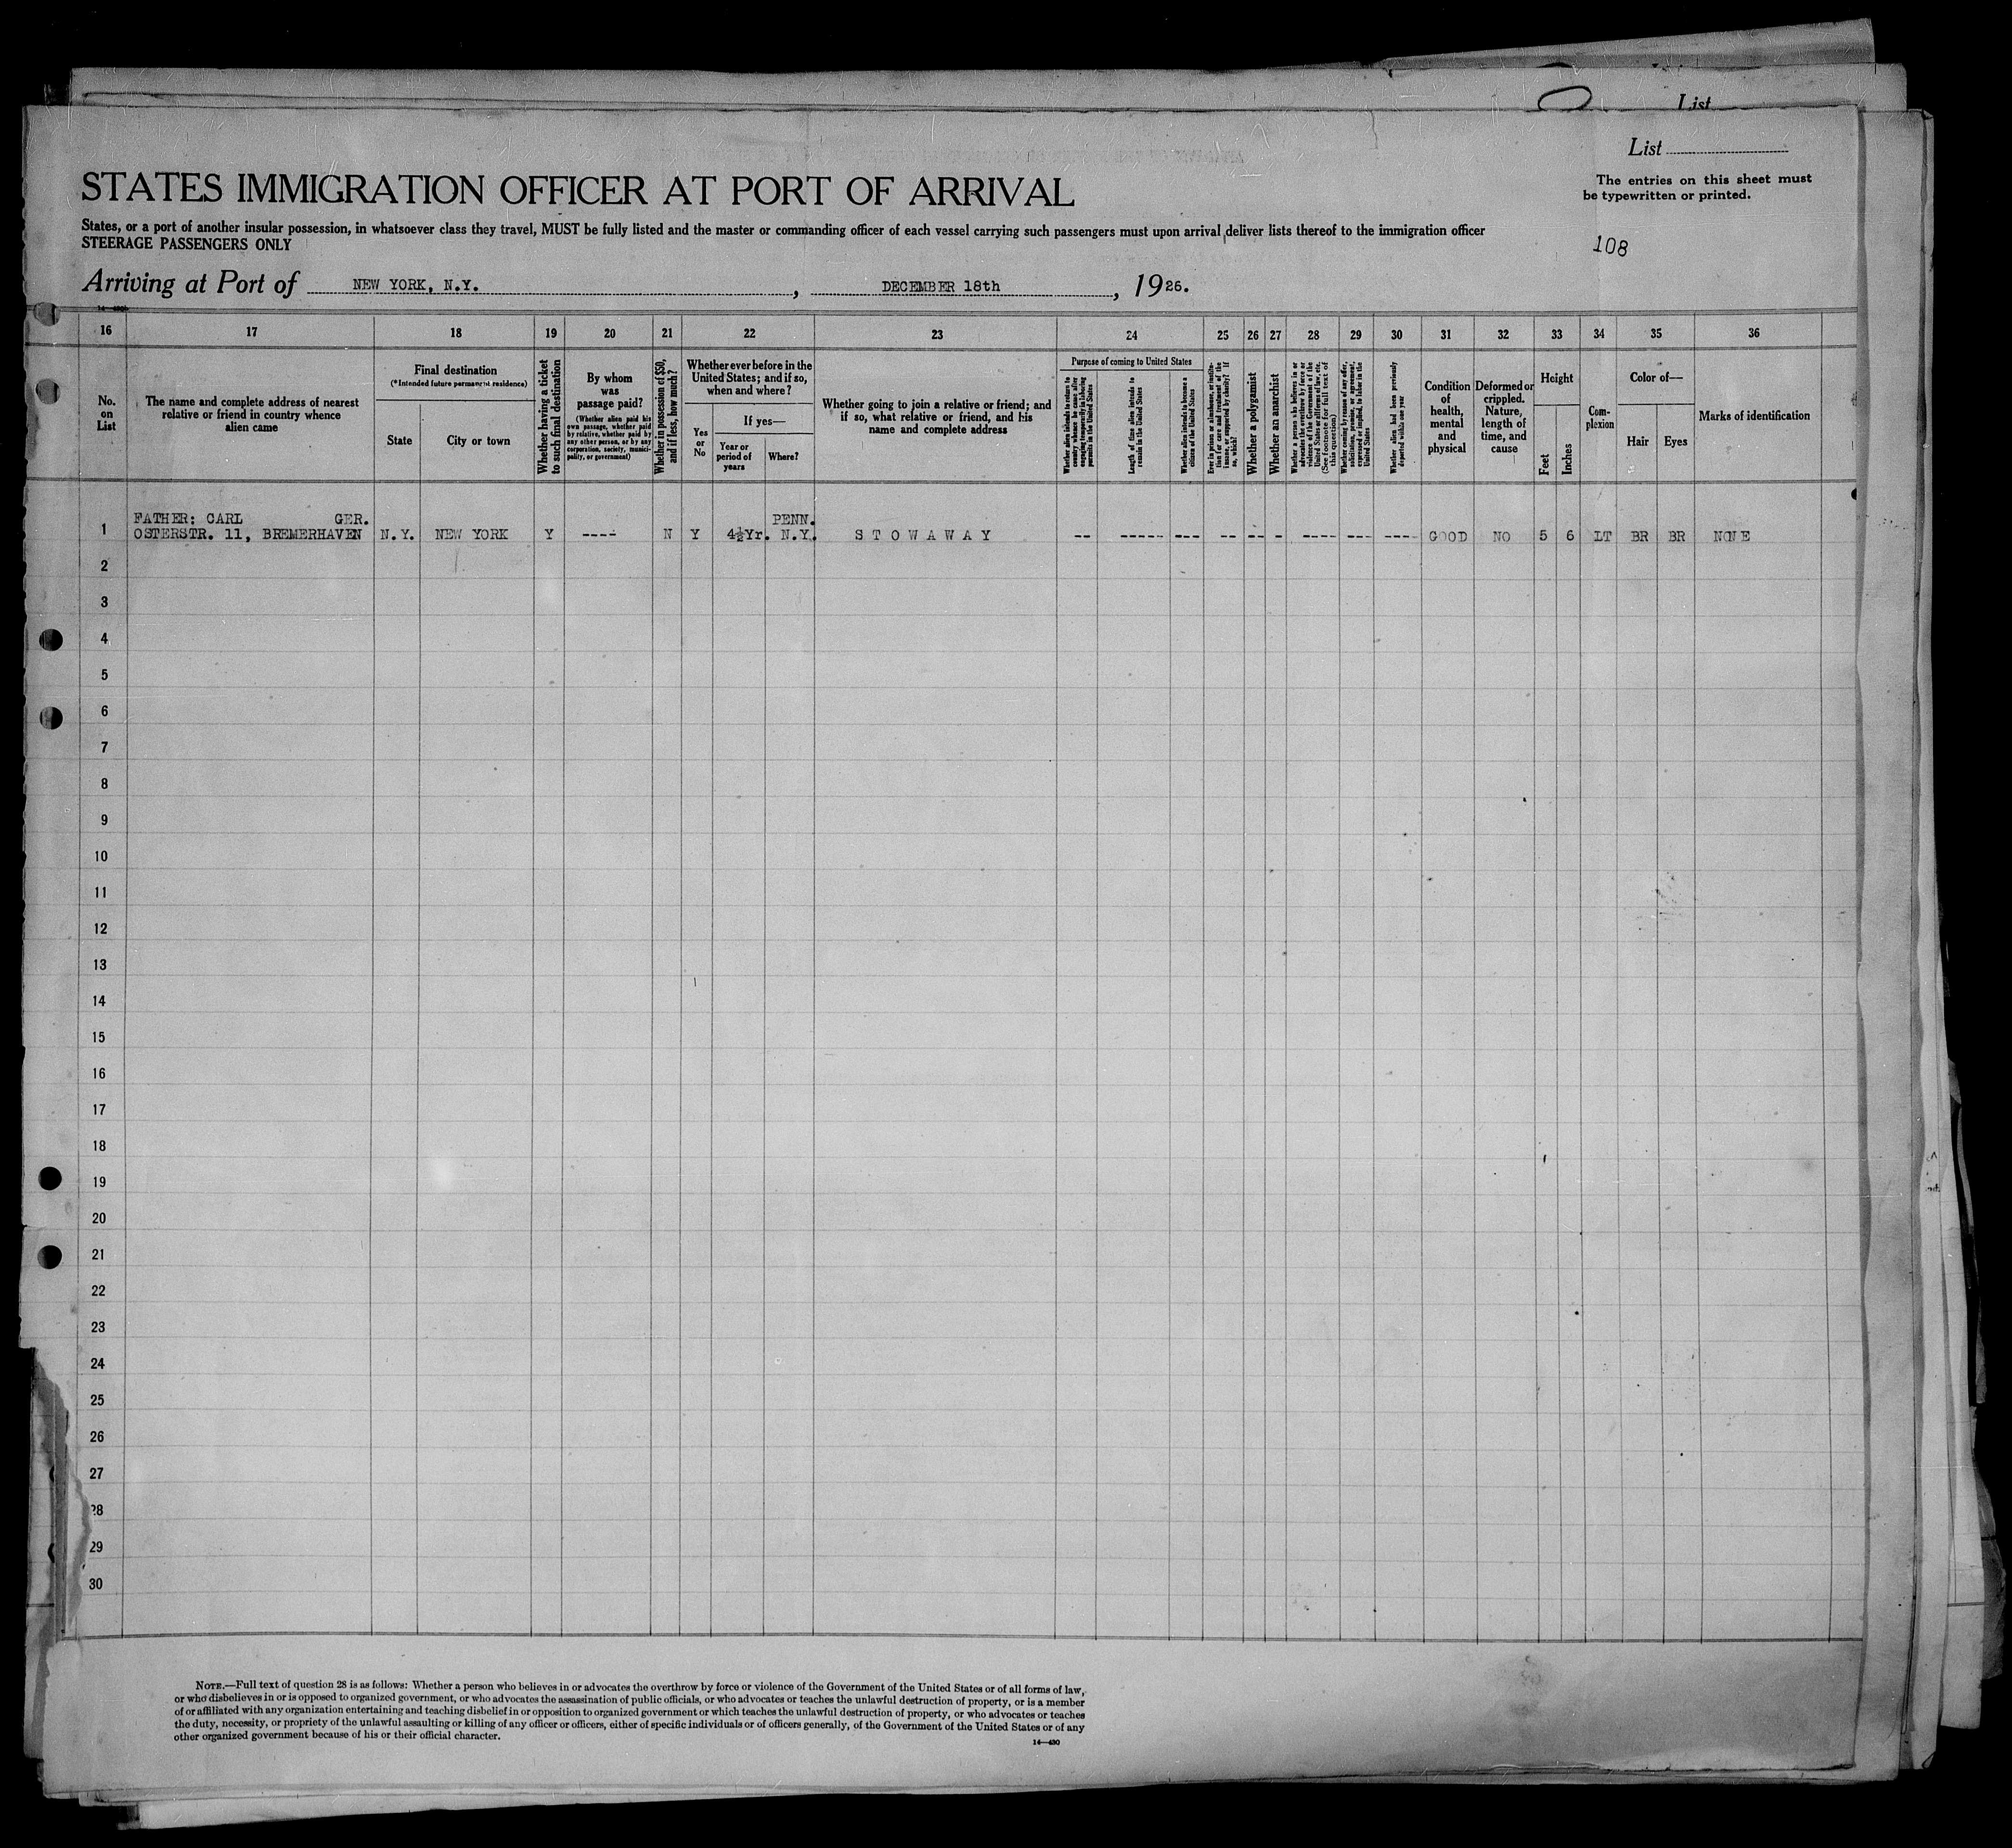 List
List
The entries on this sheet must
be typewritten or printed.
STATES IMMIGRATION OFFICER AT PORT OF ARRIVAL
States, or a port of another insular possession, in whatsoever class they travel, MUST be fully listed and the master or commanding officer of each vessel carrying such passengers must upon arrival deliver lists thereof to the immigration officer
STEERAGE PASSENGERS ONLY
108
Arriving at Port of NEW YORK, N.Y. , DECEMBER 18th , 1926.
16 17 18 19 20 21 22 23 24 25 26 27 28 29 30 31 32 33 34 35 36
No.
on
List
The name and complete address of nearest
relative or friend in country whence
alien came
Final destination
(*Intended future permanent residence)
State
City or town
Whether having a ticket
to such final destination
By whom
was
passage paid?
(Whether alien paid his
own passage, whether paid
by relative, whether paid by
any other person, or by any
corporation, society, munici-
pality, or government)
Whether in possession of $50,
and if less, how much?
Whether ever before in the
United States; and if so,
when and where?
Yes
or
No
If yes—
Year or
period of
years
Where?
Whether going to join a relative or friend; and
if so, what relative or friend, and his
name and complete address
Purpose of coming to United States
Whether alien intends to return to
country whence he came after
engaging temporarily in laboring
pursuits in the United States
Length of time alien intends to
remain in the United States
Whether alien intends to become a
citizen of the United States
Ever in prison or almshouse, or institu-
tion for care and treatment of the
insane, or supported by charity? If
so, which?
Whether a polygamist
Whether an anarchist
Whether a person who believes in or
advocates the overthrow by force or
violence of the Government of the
United States or all forms of law, etc.
(See footnote for full text of
this question)
Whether coming by reason of any offer,
solicitation, promise, or agreement,
expressed or implied, to labor in the
United States
Whether alien had been previously
deported within one year
Condition
of
health,
mental
and
physical
Deformed or
crippled.
Nature,
length of
time, and
cause
Height
Feet
Inches
Com-
plexion
Color of—
Hair
Eyes
Marks of identification
FATHER: CARL GER. PENN.
1 OSTERSTR. 11, BREMERHAVEN N.Y. NEW YORK Y ---- N Y 4½Yr. N.Y. S T O W A W A Y -- ----- --- -- -- - ---- --- ---- GOOD NO 5 6 LT BR BR NONE
2
3
4
5
6
7
8
9
10
11
12
13
14
15
16
17
18
19
20
21
22
23
24
25
26
27
28
29
30
NOTE.—Full text of question 28 is as follows: Whether a person who believes in or advocates the overthrow by force or violence of the Government of the United States or of all forms of law,
or who disbelieves in or is opposed to organized government, or who advocates the assassination of public officials, or who advocates or teaches the unlawful destruction of property, or is a member
of or affiliated with any organization entertaining and teaching disbelief in or opposition to organized government or which teaches the unlawful destruction of property, or who advocates or teaches
the duty, necessity, or propriety of the unlawful assaulting or killing of any officer or officers, either of specific individuals or of officers generally, of the Government of the United States or of any
other organized government because of his or their official character.
14—430